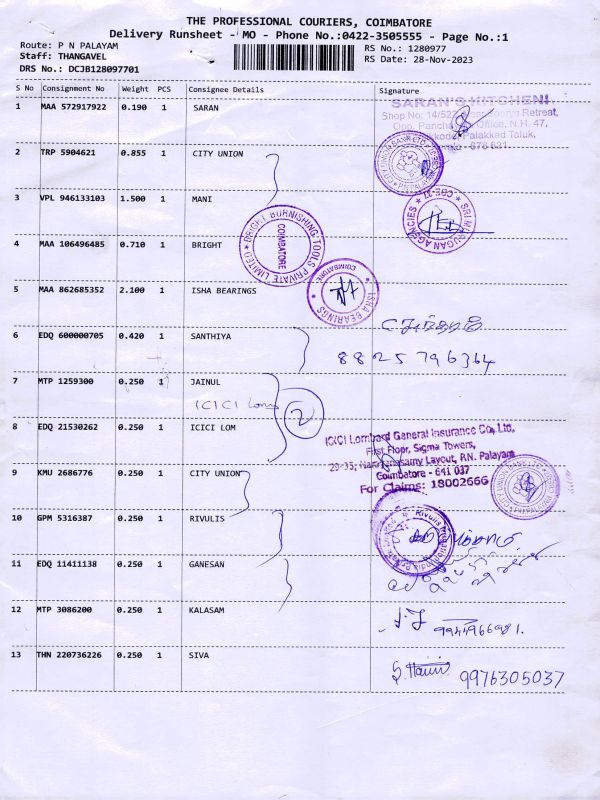 THE PROFESSIONAL COURIERS, COIMBATORE
Delivery Runsheet - MO - Phone No.:0422-3505555 - Page No.:1
Route: P N PALAYAM
RS No.: 1280977
Staff: THANGAVEL
RS Date: 28-Nov-2023
DRS No.: DCJB128097701
S No Consignment No Weight PCS Consignee Details Signature
1 MAA 572917922 0.190 1 SARAN
SARAN'S KITCHEN
Retreat,
Office, N.H. 47,
Palakkad Taluk,
2 TRP 5904621 0.855 1 CITY UNION
3 VPL 946133103 1.500 1 MANI
SRI MURUGAN AGENCIES
4 MAA 106496485 0.710 1 BRIGHT
BRIGHT BURNISHING TOOLS PRIVATE LIMITED
COIMBATORE
5 MAA 862685352 2.100 1 ISHA BEARINGS
ISHA BEARINGS
COIMBATORE
6 EDQ 600000705 0.420 1 SANTHIYA
8825796364
7 MTP 1259300 0.250 1 JAINUL
ICICI Lom
2
8 EDQ 21530262 0.250 1 ICICI LOM
ICICI Lombard General Insurance Co. Ltd.
First Floor, Sigma Towers,
Layout, P.N. Palayam
Coimbatore - 641 037
For Claims: 18002666
9 KMU 2686776 0.250 1 CITY UNION
10 GPM 5316387 0.250 1 RIVULIS
11 EDQ 11411138 0.250 1 GANESAN
12 MTP 3086200 0.250 1 KALASAM
13 THN 220736226 0.250 1 SIVA
9976305037